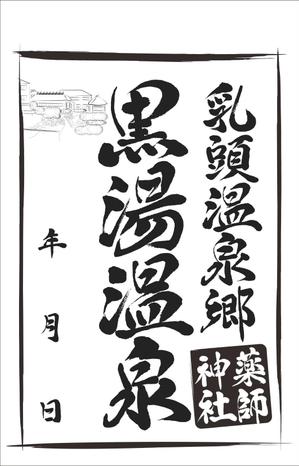 乳頭温泉郷
薬師
神社
黒湯温泉
年 月 日